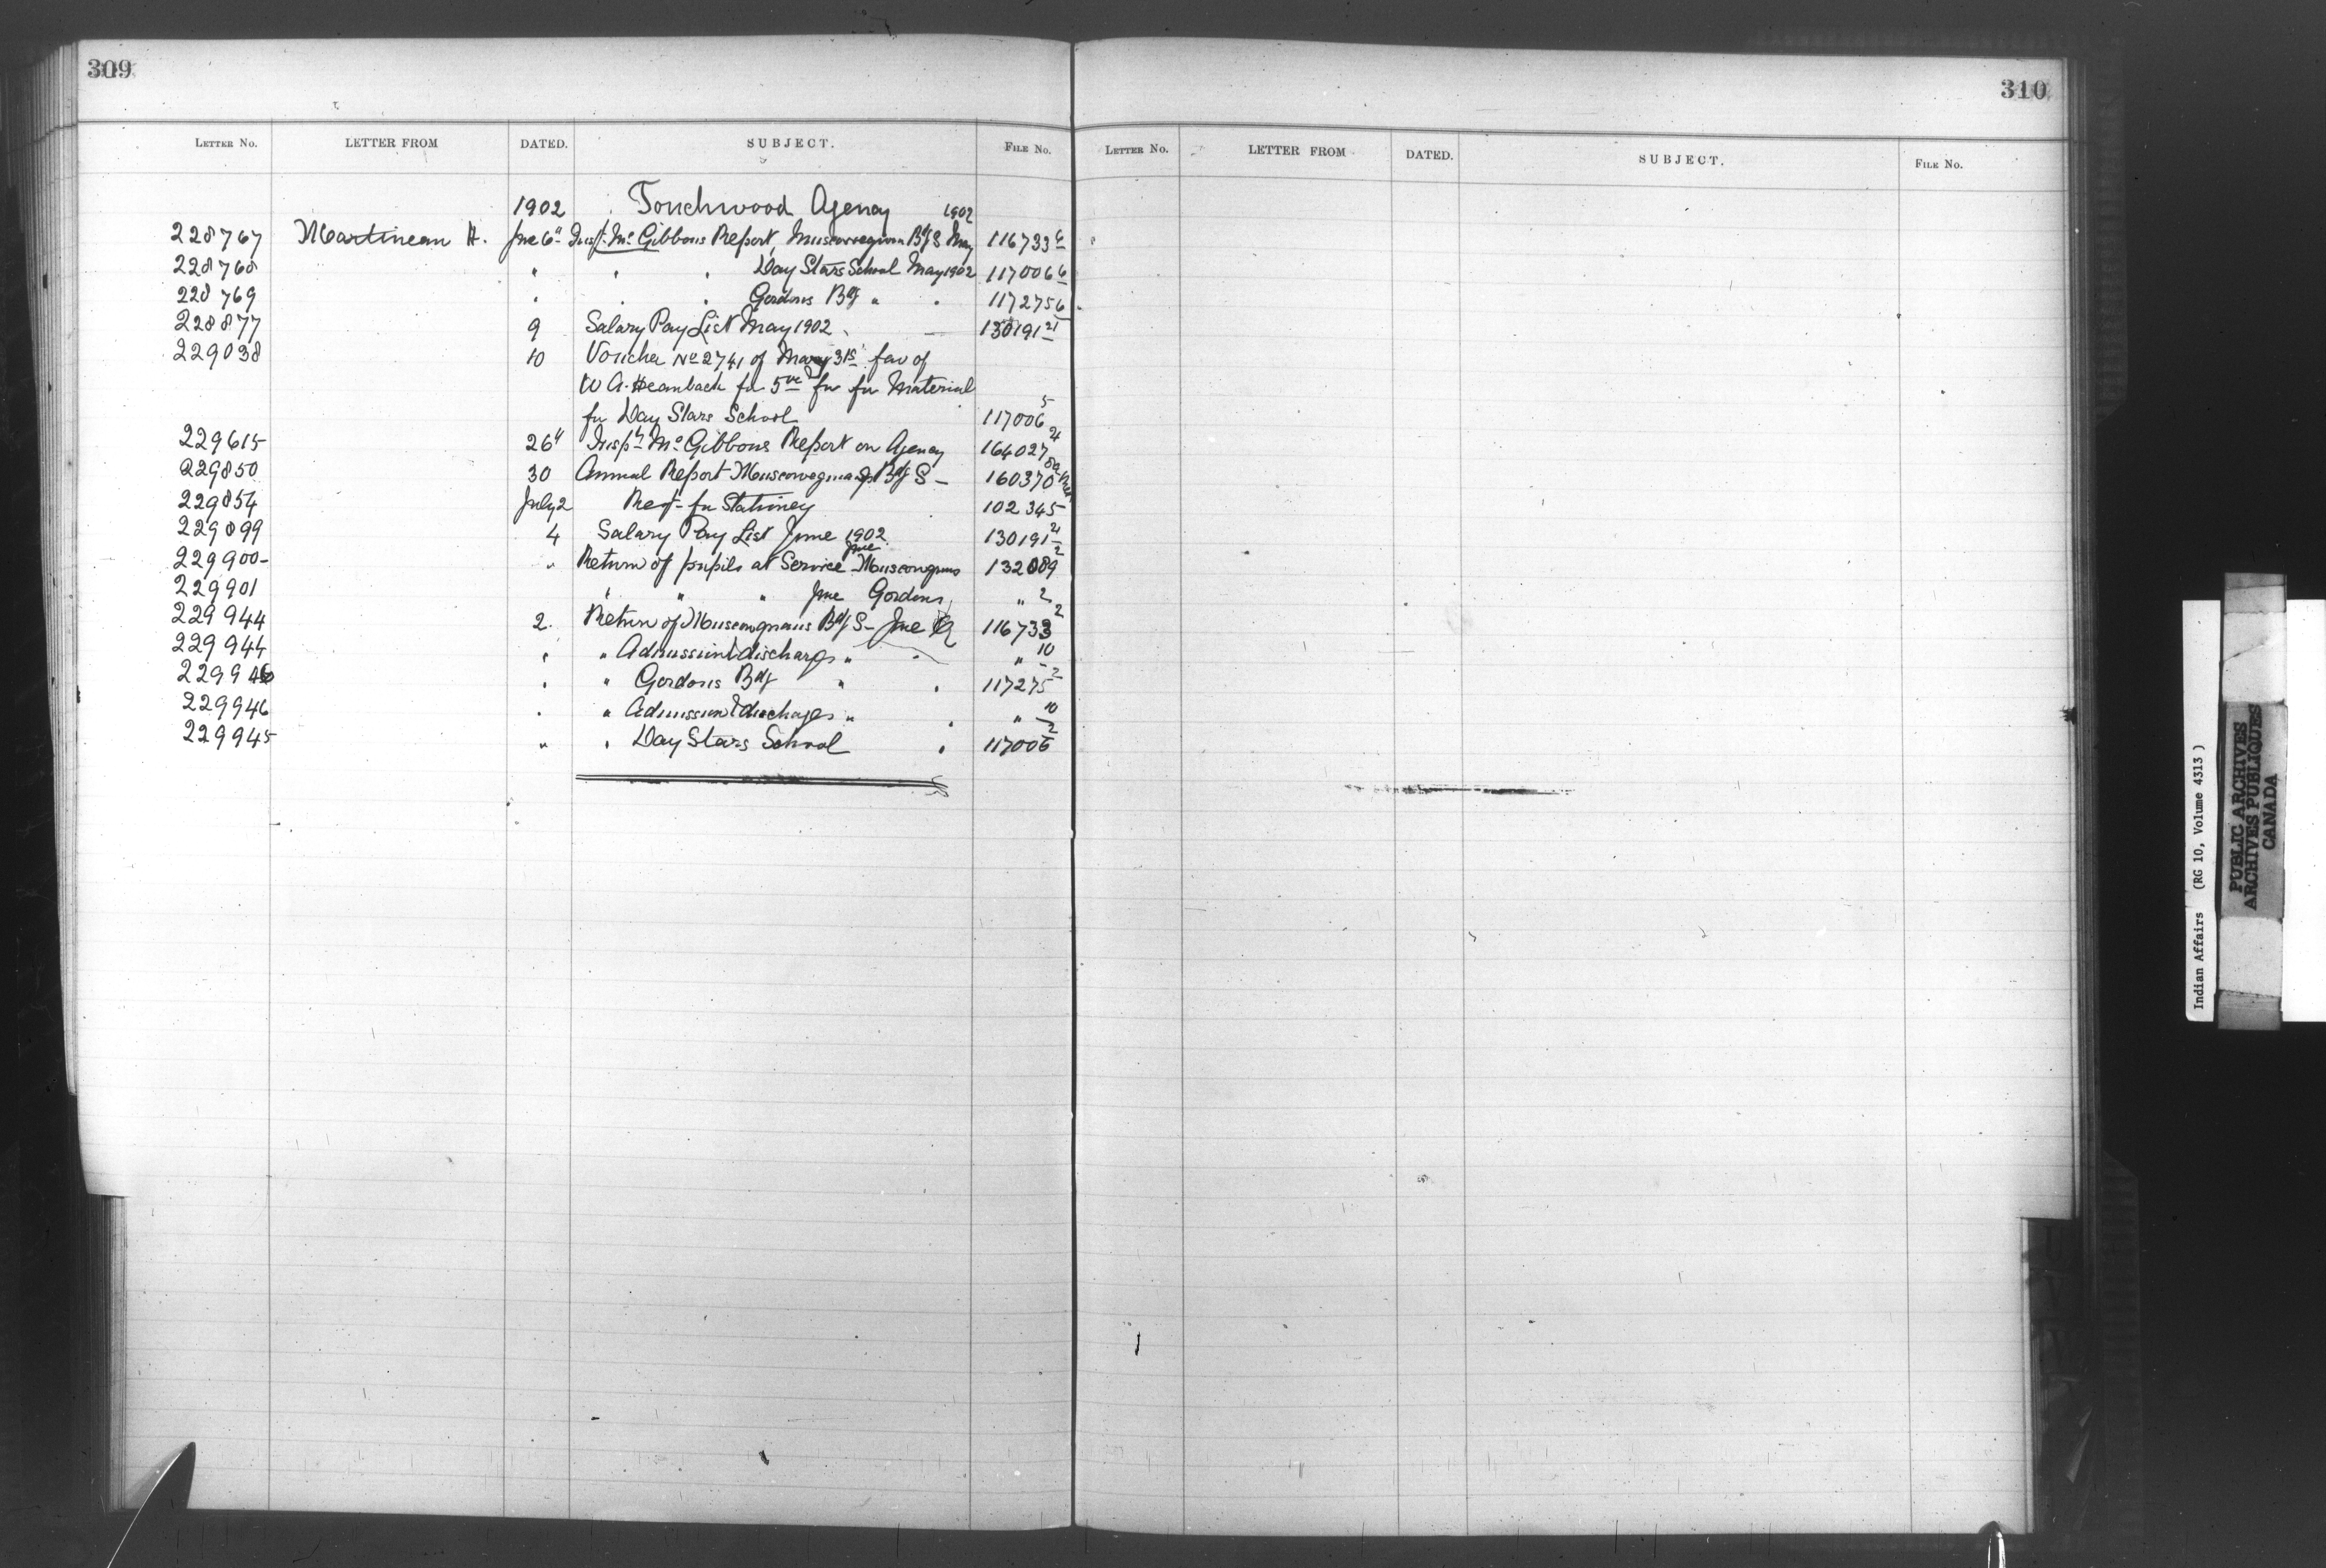 309
LETTER NO. LETTER FROM DATED. SUBJECT. FILE NO.
1902 Touchwood Agency 1902
228767 Martineau H. June 6" Insp. McGibbons Report Muscowegun Bdg S May 116733 6
228768 " " " Day Stars School May 1902 117006 6
228769 " " " Gordons Bdg " " 117275 6
228877 9 Salary Pay List May 1902 130191 21
229038 10 Voucher No 2741 of May 31st fav of
W A. Heanbach for for Material
for Day Stars School 117006 5
229615 26" Inspr McGibbons Report on Agency 164027
229850 30 Annual Report Muscowegans Bdg S - 160370
229854 July 2 Reqt for Stationery 102345
229899 4 Salary Pay List June 1902 130191 21
229900 " Return of pupils at Service June Muscowguns 132089 2
229901 " " " June Gordons " 2
229944 2. Return of Muscowguns Bdg S - June 116733 2
229944 " " Admission & discharges " " " 10
229946 " " Gordons Bdg " " 117275 2
229946 " " Admission & discharges " " " 10
229945 " " Day Stars School " 117006 2
310
LETTER NO. LETTER FROM DATED. SUBJECT. FILE NO.
Indian Affairs (RG 10, Volume 4313)
PUBLIC ARCHIVES
ARCHIVES PUBLIQUES
CANADA